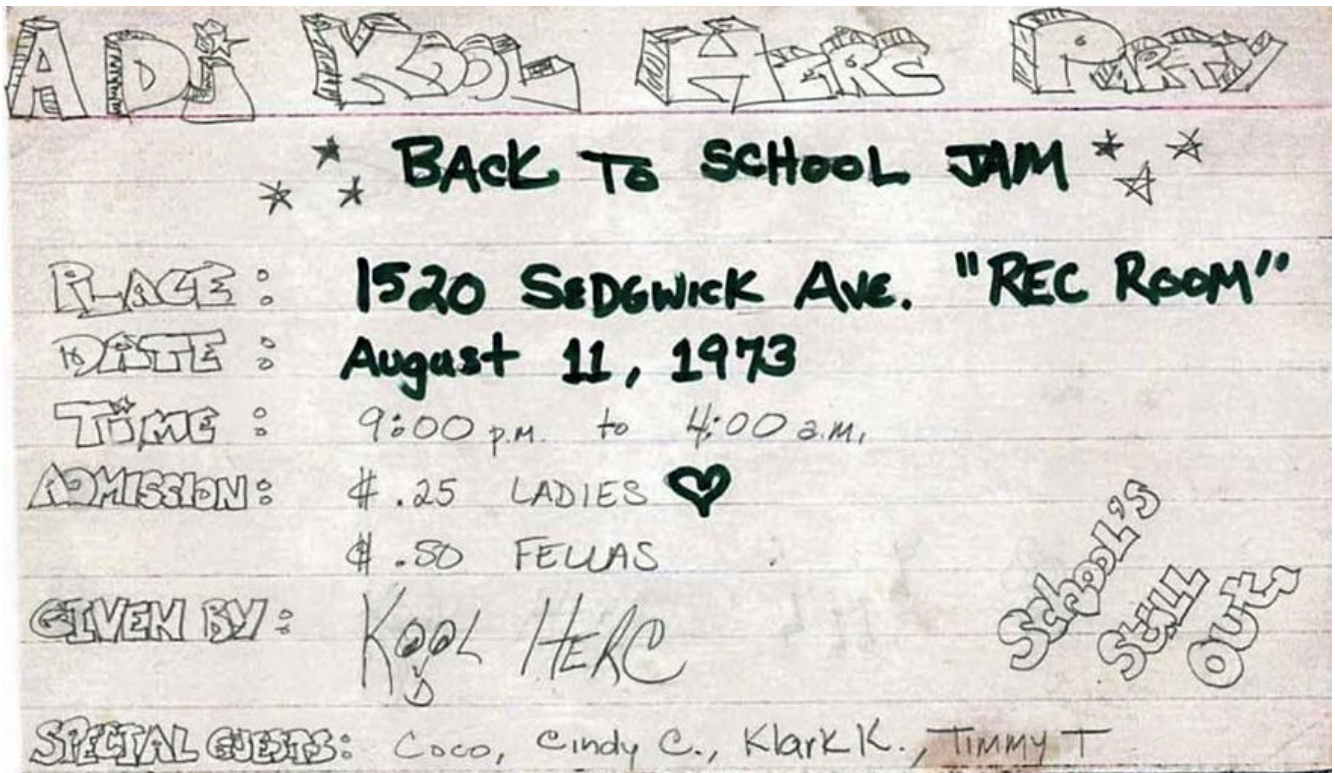 A DJ KOOL HERC PARTY
BACK TO SCHOOL JAM
PLACE: 1520 SEDGWICK AVE. "REC ROOM"
DATE: August 11, 1973
TiME: 9:00 p.m. to 4:00 a.m.
ADMISSION: $.25 LADIES
$.50 FELLAS
GIVEN BY: KOOL HERC
SCHOOL'S
STiLL
OUT.
SPECIAL GUESTS: Coco, Cindy C., Klark K., TIMMY T